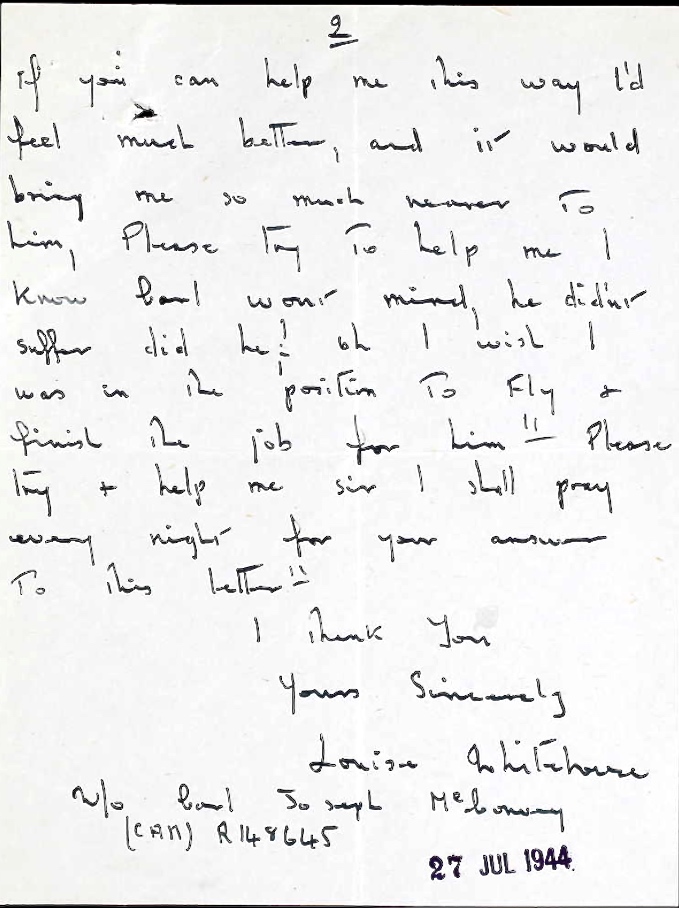 2
If you can help me this way I'd
feel much better, and it would
bring me so much nearer To
him, Please Try To help me I
know Carl won't mind, he didn't
suffer did he! oh I wish I
was in the position To Fly &
finish the job for him!! Please
Try + help me sir I shall pray
every night for your answer
To this letter!!
I Thank You
Yours Sincerely
Louise Whitehouse
W/o Carl Joseph McConvey
(CAN) R148645
27 JUL 1944.